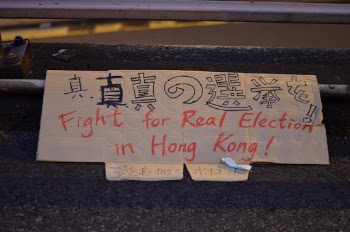 真真真の選挙を!
Fight for Real Election
in Hong Kong!